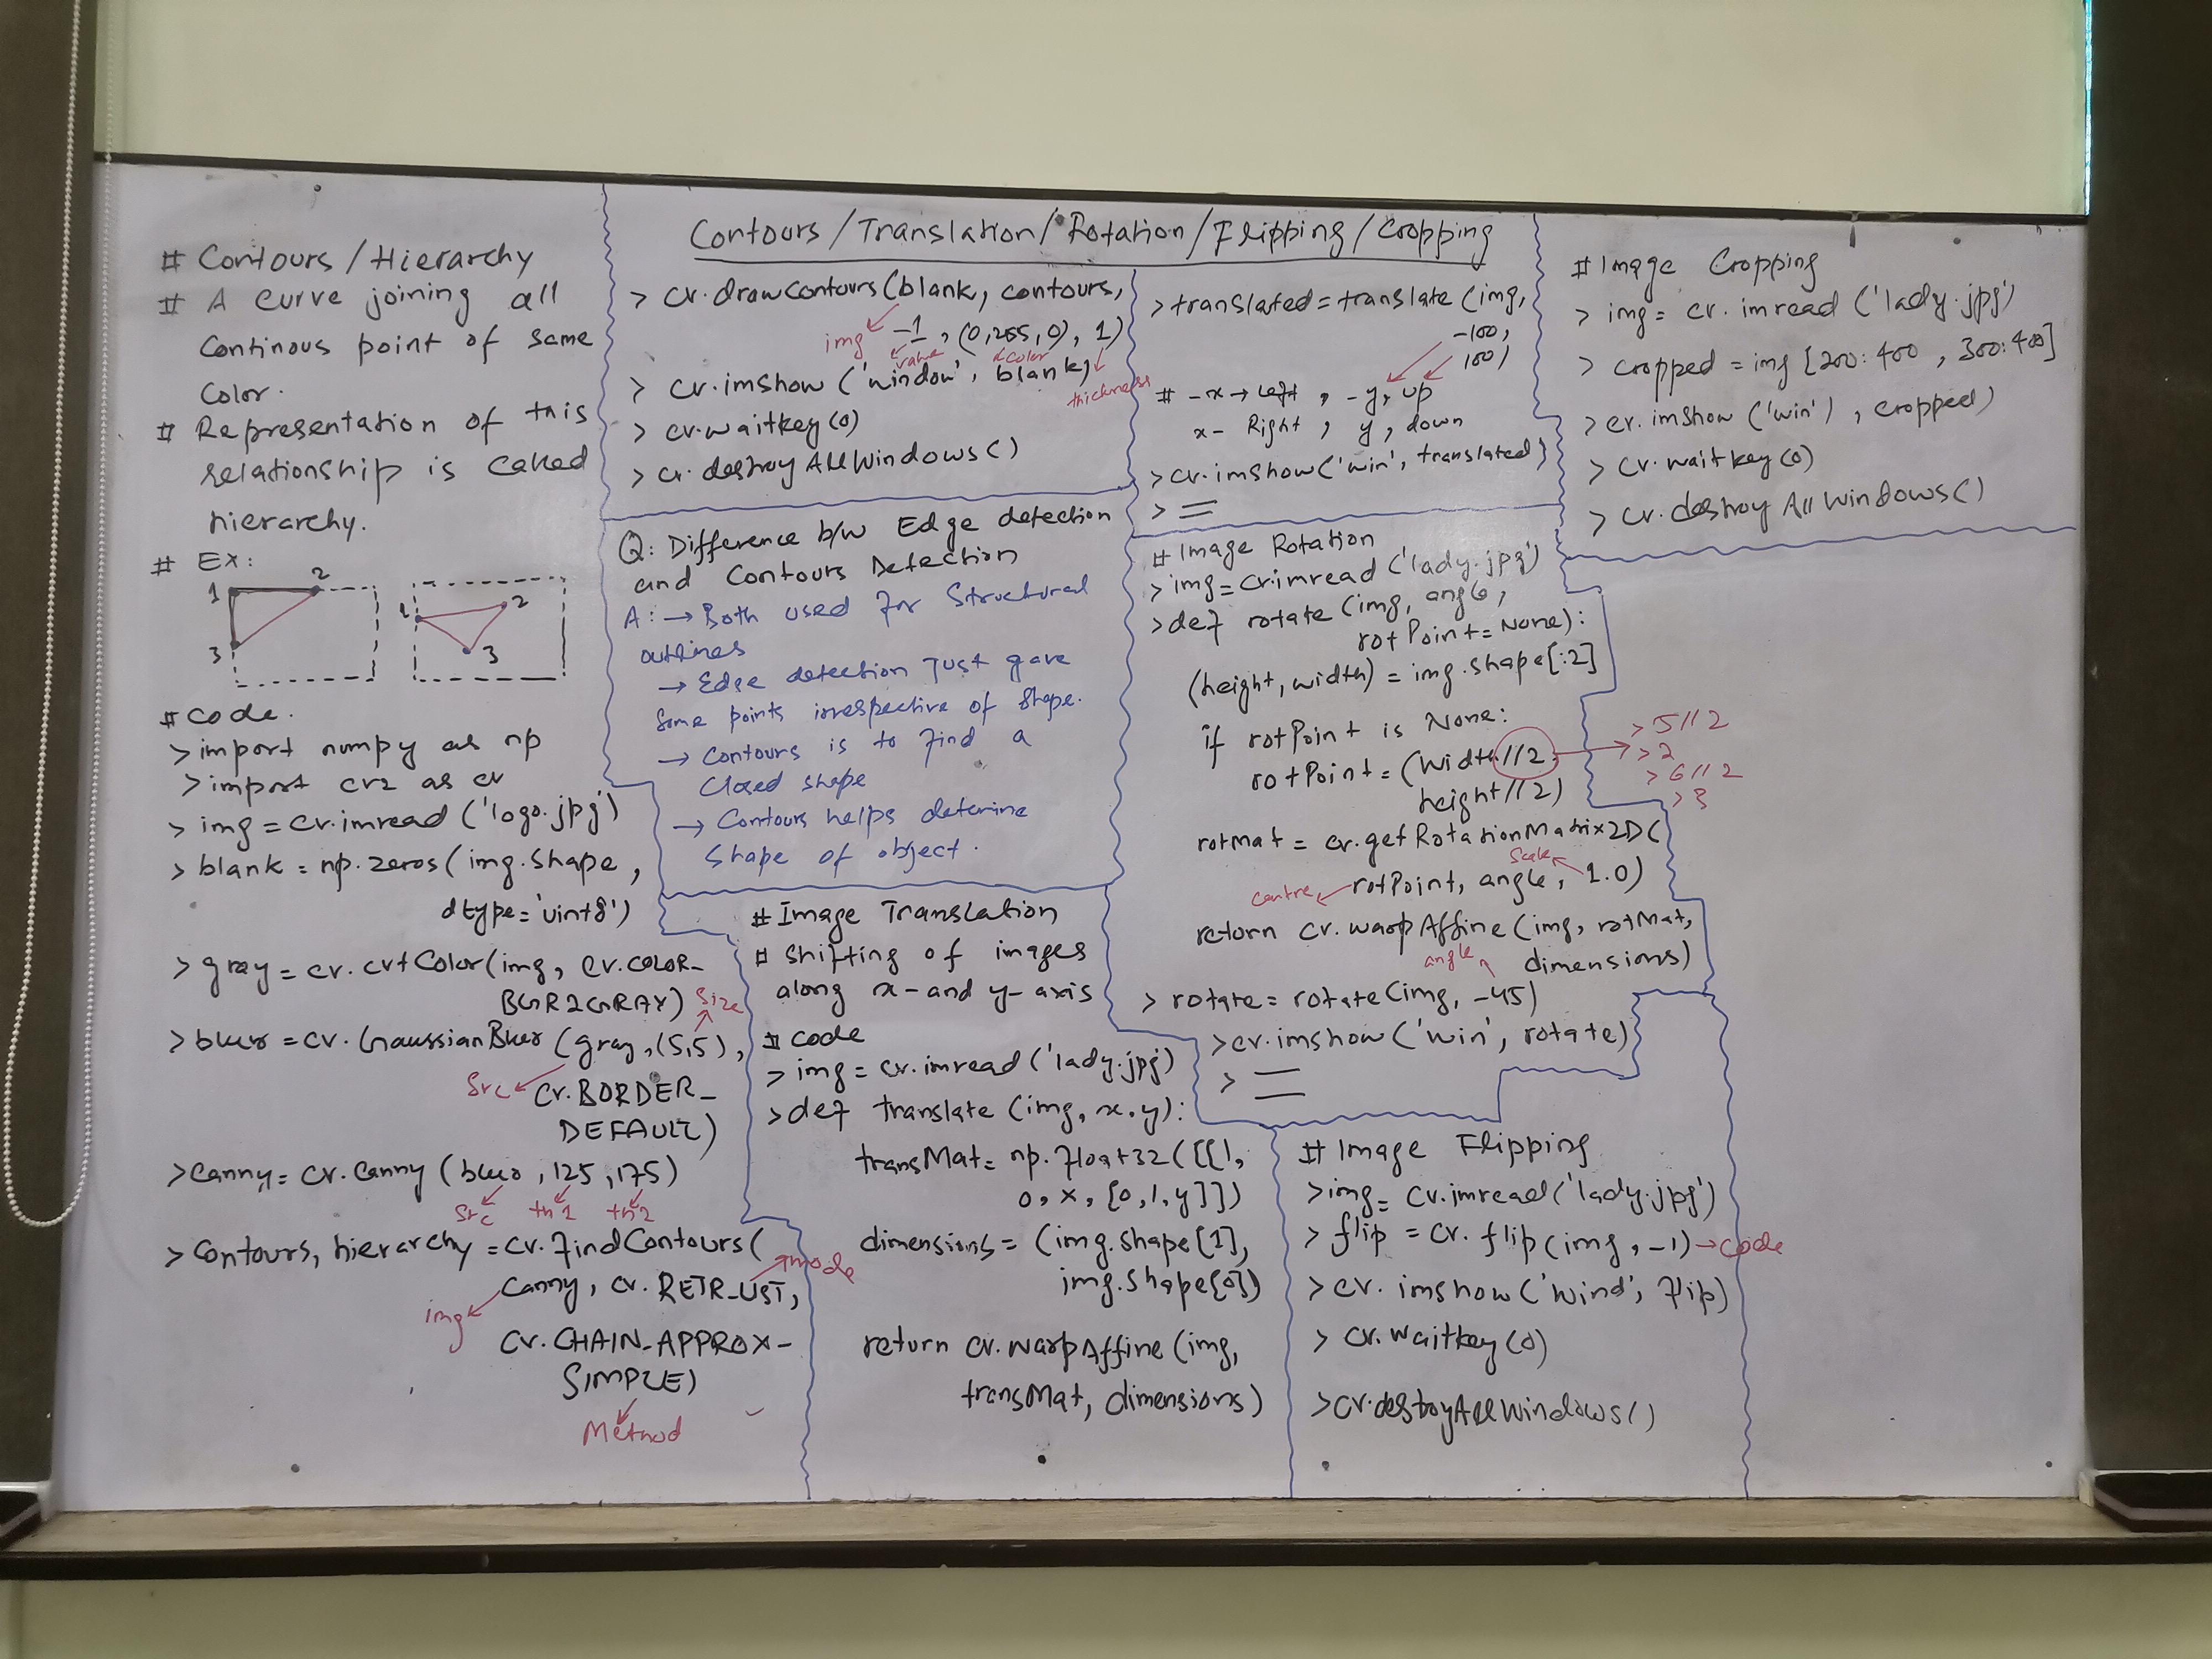 Contours/Translation/Rotation/Flipping/Cropping
# Contours/Hierarchy
# A curve joining all
Continous point of same
Color.
# Representation of this
relationship is called
hierarchy.
# Ex:
1 2
3
1 2
3
# Code.
>import numpy as np
>import cv2 as cv
> img=cv.imread ('logo.jpg')
> blank = np.zeros(img.shape,
dtype='uint8')
> gray=cv.cvtColor(img, cv.COLOR_
BGR2GRAY) Size
>blur=cv.GaussianBlur (gray,(5,5),
Src cv.BORDER_
DEFAULT)
>canny=cv.canny (blur,125,175)
Src th1 th2
> Contours, hierarchy =cv.findContours(
mode
canny, cv.RETR_LIST,
img
cv.CHAIN_APPROX_
SIMPLE)
Method
> cv.drawContours(blank, contours,
img -1, (0,255,0), 1)
value color
> cv.imshow ('window', blank)
thickness
> cv.waitkey(0)
> cv.destroyAllWindows()
Q: Difference b/w Edge detection
and Contours Detection
A: → Both used for Structural
outlines
→ Edge detection just gave
Some points irrespective of shape.
→ Contours is to find a
Closed shape
→ Contours helps deternine
Shape of object.
# Image Translation
# Shifting of images
along x-and y-axis
# code
> img=cv.imread ('lady.jpg')
>def translate (img, x,y):
transMat= np.float32([[1,
0,x,[0,1,y]])
dimensions= (img.shape[1],
img.shape[0])
return cv.warpAffine (img,
transMat, dimensions)
>translated=translate (img,
-100,
100)
# -x→Left, -y, up
x- Right, y, down
>cv.imshow('win', translated)
> =
# Image Rotation
>img=cv.imread ('lady.jpg')
>def rotate (img, angle,
rotPoint=None):
(height,width) = img.shape[:2]
if rotPoint is None:
rotPoint=(width//2
height//2)
> 5//2
> 2
> 6//2
> 3
rotMat = cv.getRotationMatrix2D(
Scale
centre rotPoint, angle, 1.0)
return cv.warpAffine (img, rotMat,
angle dimensions)
> rotate=rotate(img, -45)
>cv.imshow('win', rotate)
> =
# Image Flipping
>img= cv.imread('lady.jpg')
> flip =cv.flip(img,-1)→code
>cv.imshow('wind', flip)
> cv.waitkey(0)
>cv.destroyAllWindows()
# Image Cropping
> img= cv.imread ('lady.jpg')
> cropped=img [200:400, 300:400]
>cv.imshow ('win'), cropped)
> cv.waitkey(0)
> cv.destroyAllWindows()